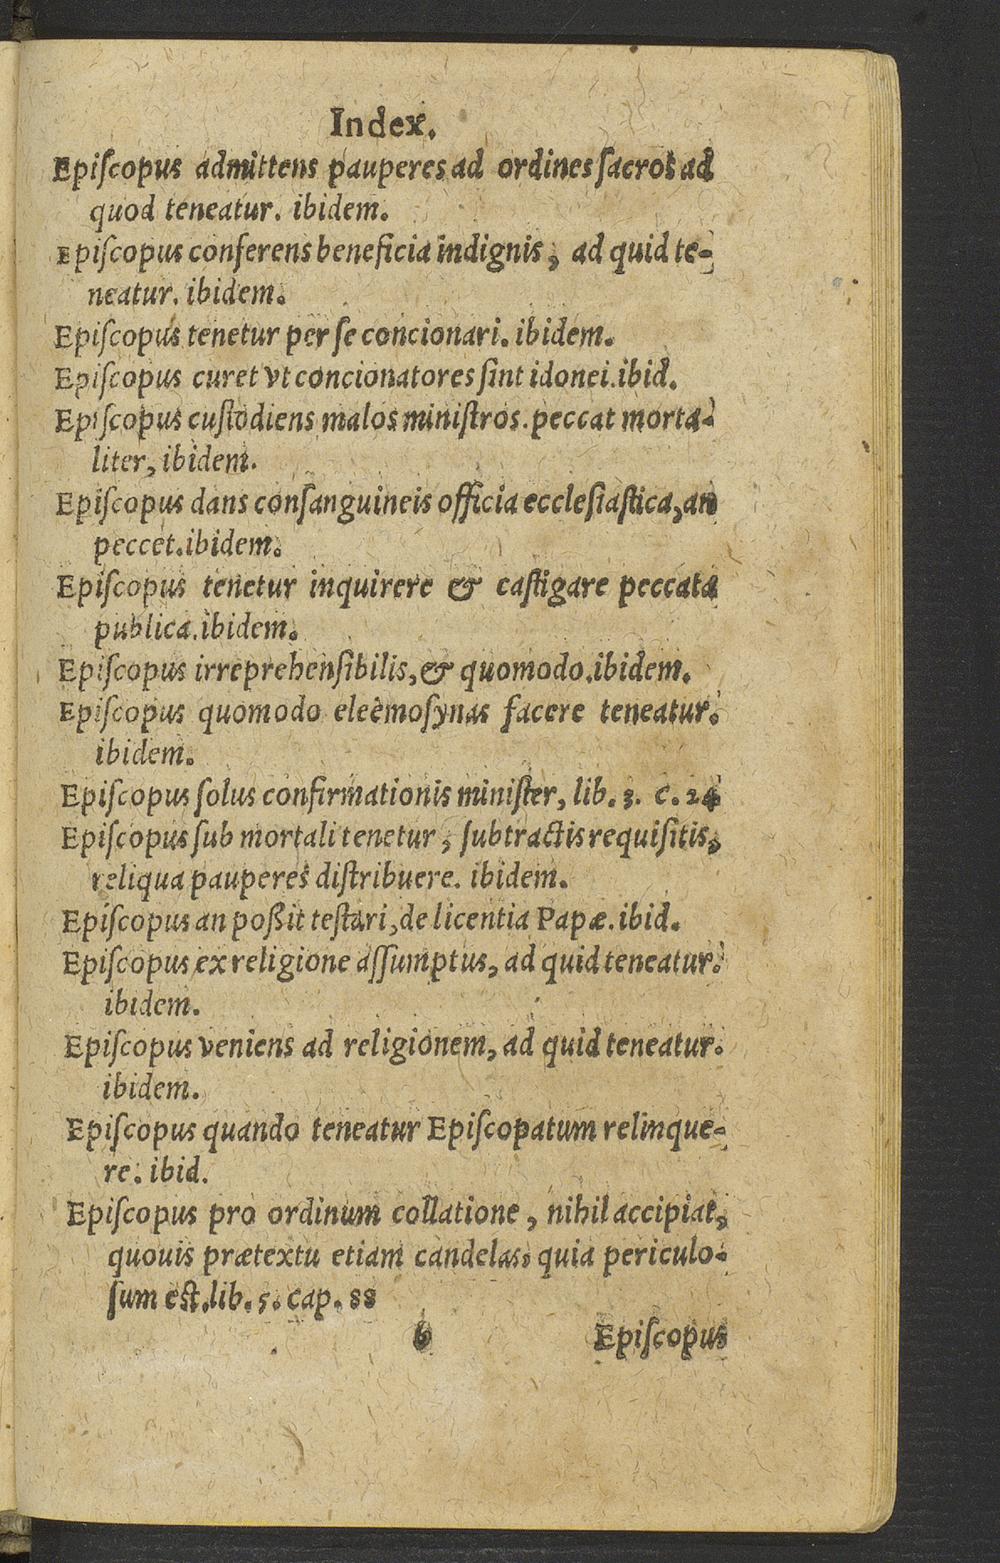 Index.
Epiſcopus admittens pauperes ad ordines ſacros ad
quod teneatur. ibidem.
Epiſcopus conferens beneficia indignis, ad quid te-
neatur. ibidem.
Epiſcopus tenetur per ſe concionari. ibidem.
Epiſcopus curet vt concionatores ſint idonei. ibid.
Epiſcopus cuſtodiens malos miniſtros. peccat morta-
liter, ibidem.
Epiſcopus dans conſanguineis officia eccleſiaſtica, an
peccet. ibidem.
Epiſcopus tenetur inquirere & caſtigare peccata
publica. ibidem.
Epiſcopus irreprehenſibilis, & quomodo. ibidem.
Epiſcopus quomodo eleèmoſynas facere teneatur.
ibidem.
Epiſcopus ſolus confirmationis miniſter, lib. 3. c. 24
Epiſcopus ſub mortali tenetur, ſubtractis requiſitis,
reliqua pauperes diſtribuere. ibidem.
Epiſcopus an poßit teſtari, de licentia Papæ. ibid.
Epiſcopus ex religione aſſumptus, ad quid teneatur.
ibidem.
Epiſcopus veniens ad religionem, ad quid teneatur.
ibidem.
Epiſcopus quando teneatur Epiſcopatum relinque-
re. ibid.
Epiſcopus pro ordinum collatione, nihil accipiat,
quouis prætextu etiam candelas, quia periculo-
ſum eſt. lib. 5. cap. 88
6 Epiſcopus